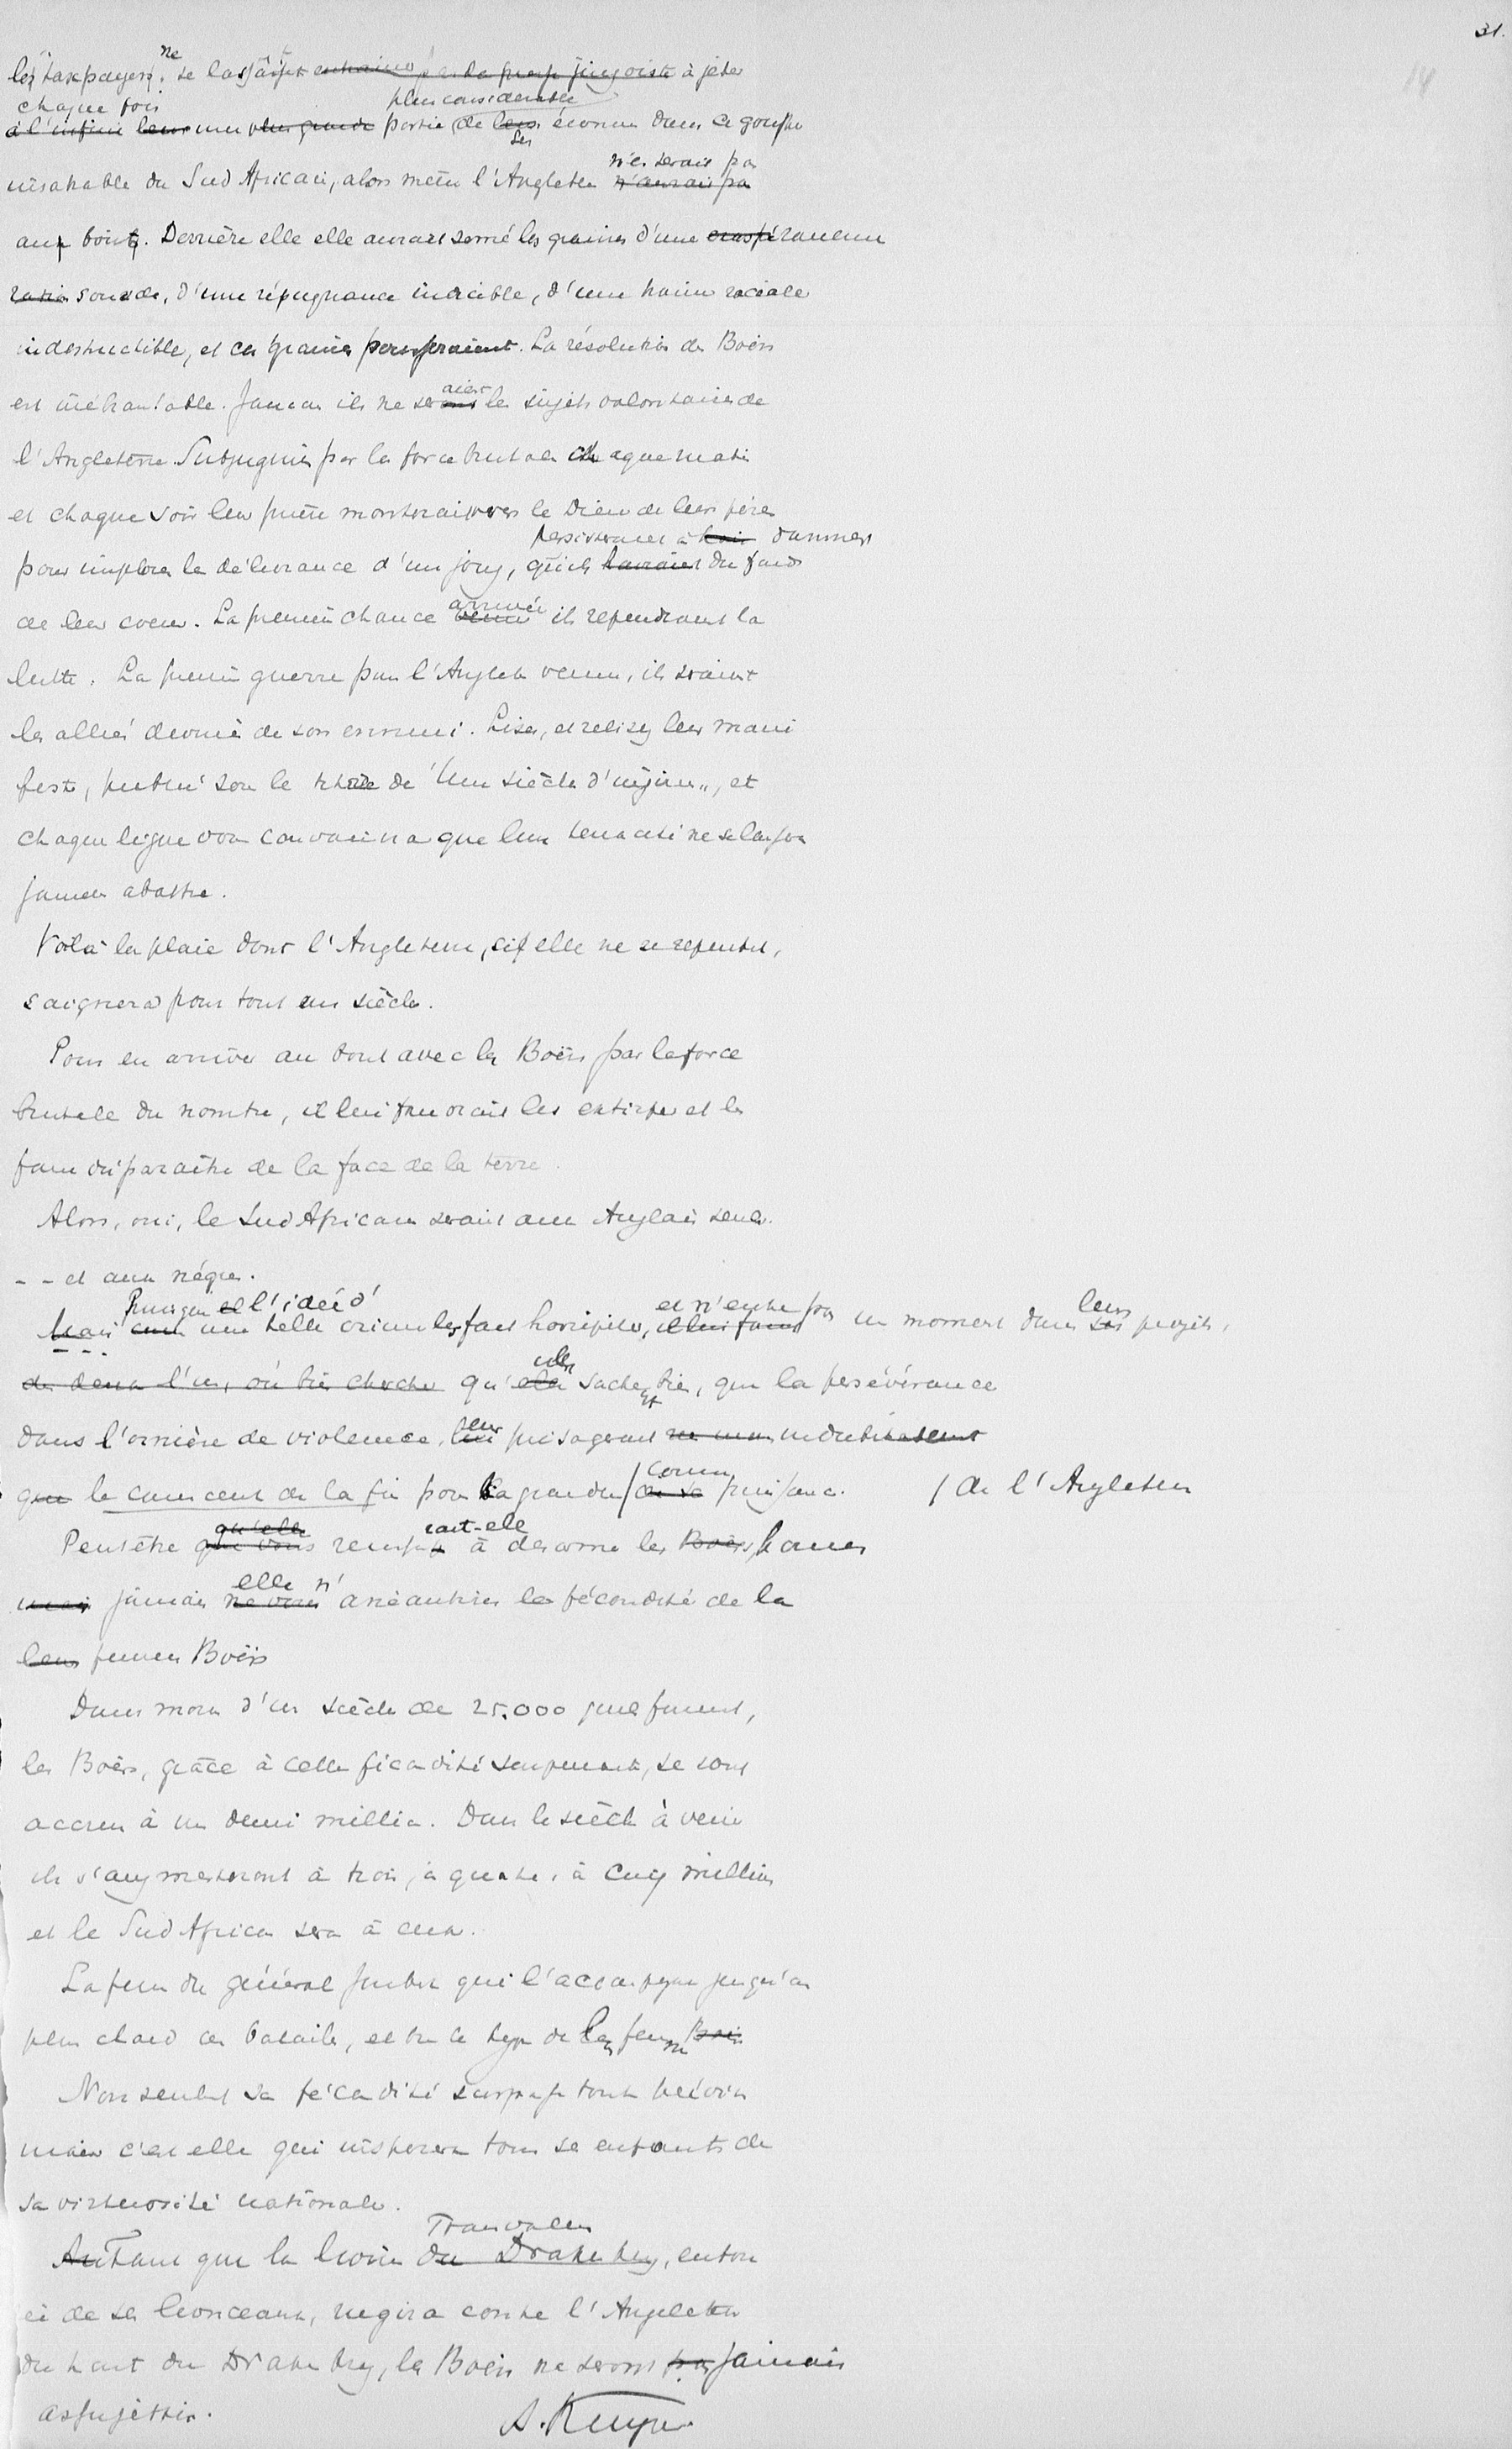 31.
14
les taxpayers ne se lassaient entrainer par la presse jingoiste à jeter
chaque fois plus considerable
à l'infini leur une plus grande partie de leurs ses écornes dans ce gouffre
insatiable du Sud Africain, alors même l'Angleterre n'aurait pas n'en serait pas
aux bouts. Derrière elle elle aurait semé les graines d'une exaspé rancune
ration sourde, d'une répugnance indicible, d'une haine raciale
indestructible, et ces graines pousseraient. La résolution des Boërs
est inébranlable. Jamais ils ne seraient les sujets volontaires de
l'Angleterre. Subjugués par la force brutale chaque matin
et chaque soir leur prière monterait vers le Dieu de leurs pères
persisteraient à haïr
pour implorer la délivrance d'un joug, qu'ils hairaient du fonds
de leur coeur. La première chance venue arrivée ils reprendraient la
lutte. La première guerre pour l'Angleterre venue, ils seraient
les alliés de son ennemi. Lisez, et relisez leur mani
feste, publié sous le titre de "Un siècle d'injure", et
chaque ligne vous convaincra que leur tenacité ne se laissera
jamais abattre.
Voilà la plaie dont l'Angleterre, si elle ne se repentit,
saignera pour tout un siècle.
Pour en arriver au bout avec les Boërs par la force
brutale du nombre, il lui faudrait les extirper et les
faire disparaître de la face de la terre.
Alors, oui, le Sud Africain serait aux Anglais seuls.
- - et aux nègres.
Puisque et l'idée d' et n'entre pas leurs
Mais une telle crime les fait horripiler, il lui faut un moment dans ses projets,
des deux l'un, où bien cherche qu'elle sachent bien, que la persévérance
dans l'ornière de violence, leur présagerait indubitablement
que le commencement de la fin pour la grandeur / de sa comme puissance. / de l'Angleterre
Peut être qu'elle que vous reussirait-elle à desarmer les Boërs, hommes
mais jamais ne vous elle n' anéantira la fécondité de la
leurs femmes Boërs
Dans moins d'un siècle de 25.000 qu'ils furent,
les Boërs, grâce à cette fécondité surprenante, se sont
accrus à un demi million. Dans le siècle à venir
ils s'augmenteront à trois, à quatre, à cinq millions
et le Sud Africain sera à eux.
La femme du général Joubert qui l'accompagna jusqu'au
plus chaud des batailes, est bien le type de la femme Boër
Non seulement sa fécondité surpasse toute prévision
mais c'est elle qui inspirera tous ses enfants de
sa virtuosité nationale.
Au Tant que la lionne du Drakenberg Transvaalienne, entou
rée de ses lionceaux, rugira contre l'Angleterre
du haut du Drakenberg, les Boërs ne seront pas jamais
assujettis.
A. Kuyper.